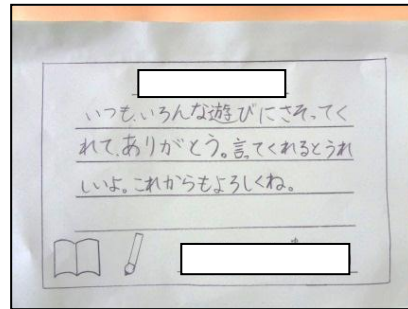 いつも、いろんな遊びにさそってく
れて、ありがとう。言ってくれるとうれ
しいよ。これからもよろしくね。